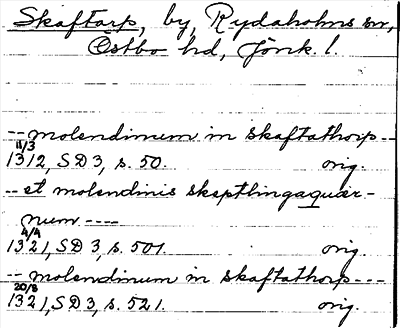 Skaftarp, by, Rydaholms sn,
Östbo hd, Jönk. l.
-- molendinum in skaftathorp --
11/3
1312, SD 3, s. 50. orig.
-- et molendinis skeptlingaquær-
num ----
4/4
1321, SD 3, s. 501. orig.
-- molendinum in skaftathorp ---
20/8
1321, SD 3, s. 521. orig.